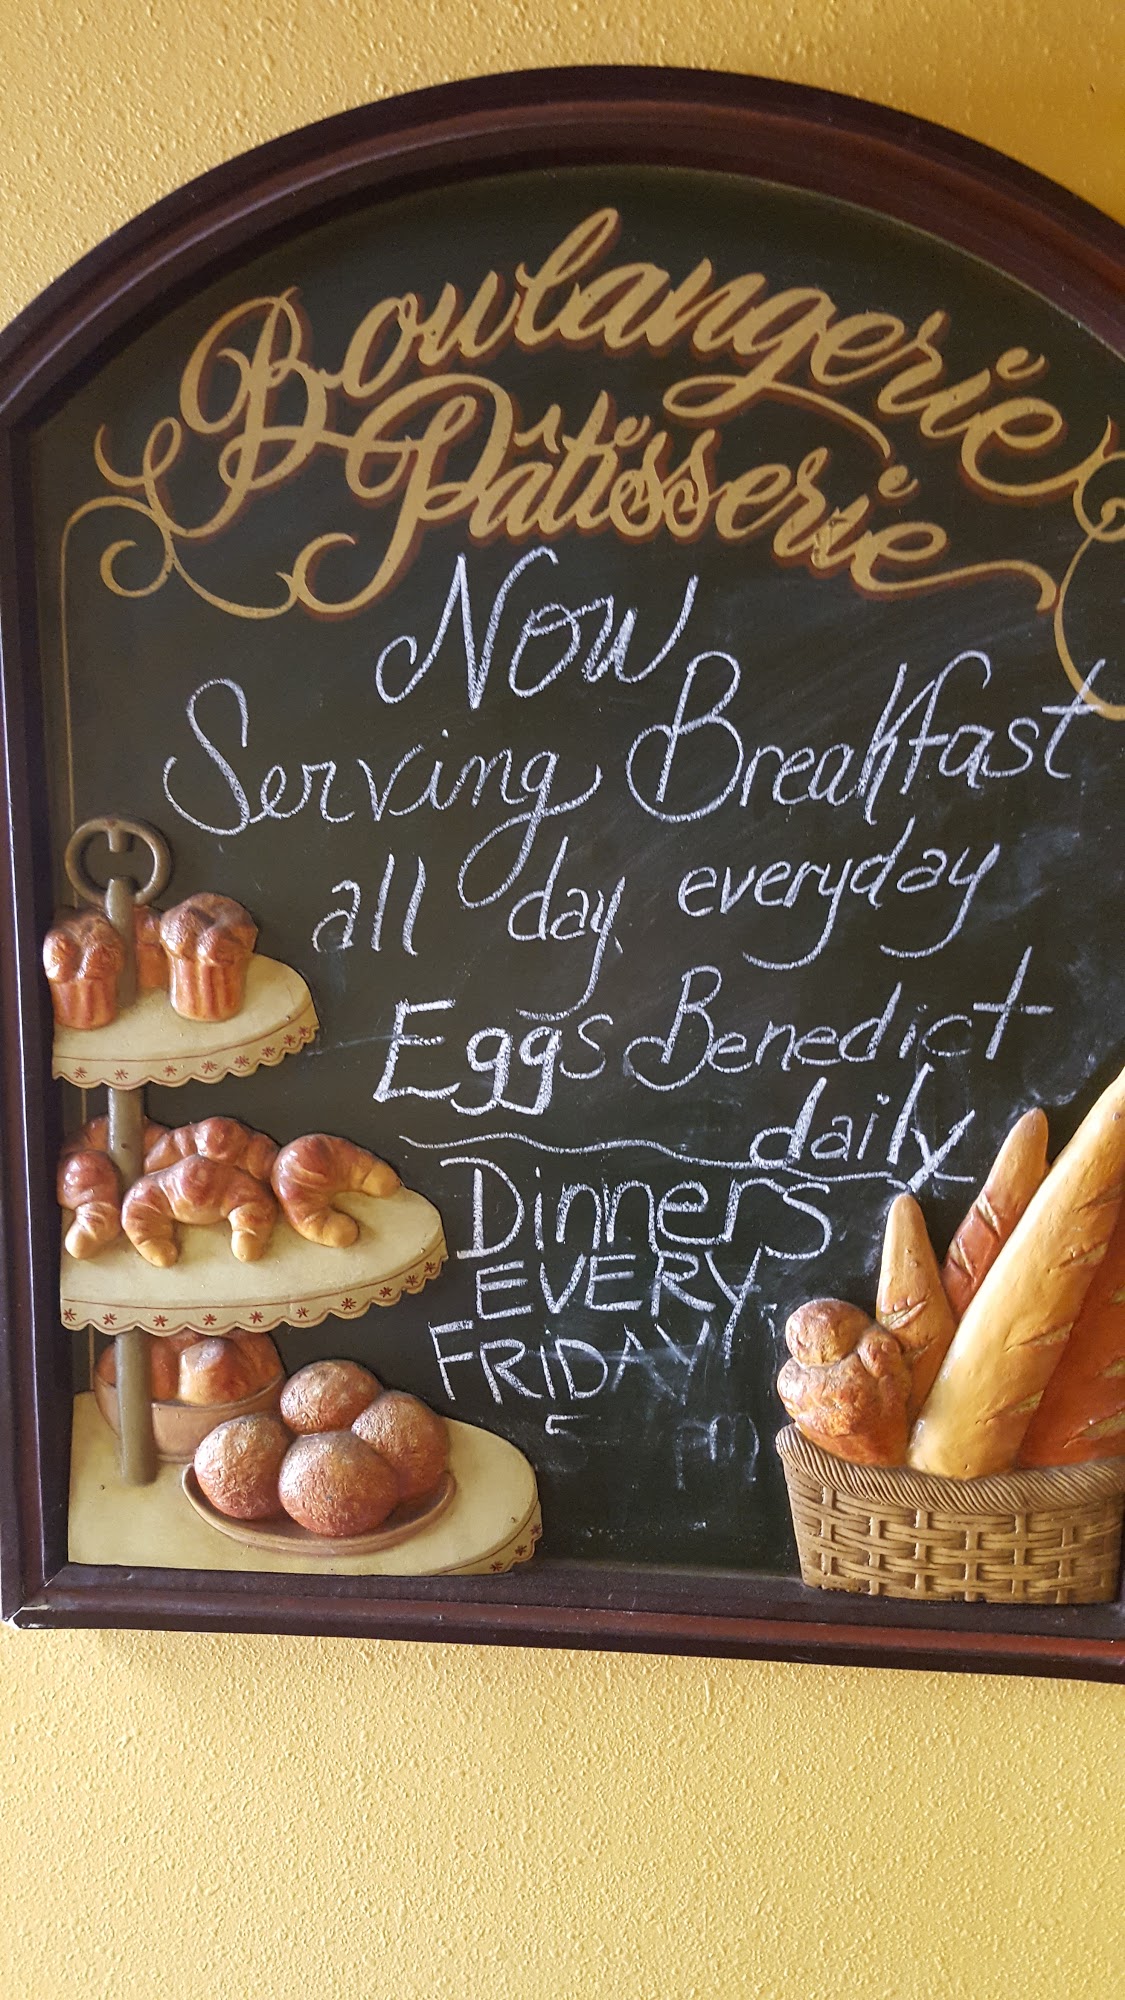 Boulangerie
Pâtisserie
Now
Serving Breakfast
all day everyday
Eggs Benedict
daily
Dinners
EVERY
FRiDAY